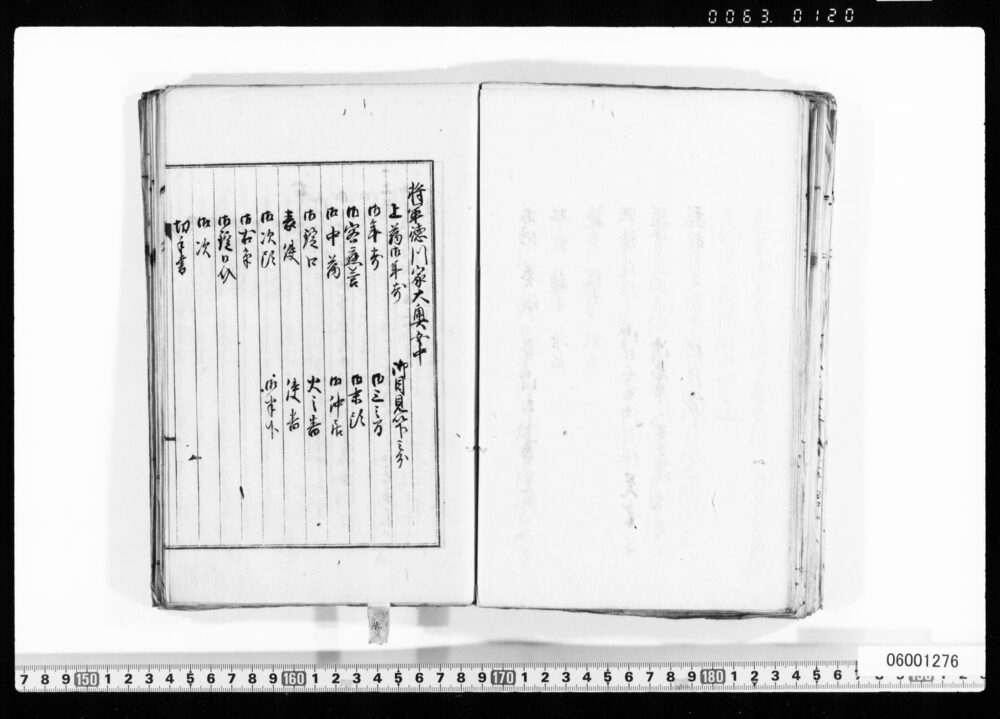 0063. 0120
将軍徳川家大奥女中
上﨟御年寄
御年寄
御客應答
御中﨟
御錠口
表使
御次頭
御右筆
御錠口介
御次
切手書
御目見以下之分
御三之間
御末頭
御仲居
火之番
使番
御半下
7 8 9 150 1 2 3 4 5 6 7 8 9 160 1 2 3 4 5 6 7 8 9 170 1 2 3 4 5 6 7 8 9 180 1 2 3 4 5
06001276